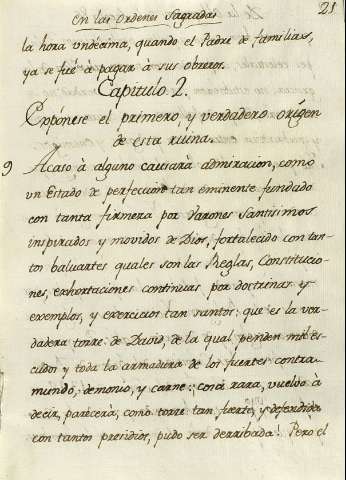 En las Ordenes Sagradas 21
la hora undecima, quando el Padre de familias,
ya se fué à pagar à sus obreros.
Capitulo 2.
Expónese el primero, y verdadero origen
de esta ruina.
9 Acaso à alguno causarà admiracion, como
un Estado de perfeccion tan eminente fundado
con tanta firmeza por Varones Santissimos
inspirados y movidos de Dios, fortalecido con tan-
tos baluartes quales son las Reglas, Constitucio-
nes, exhortaciones continuas por doctrinas y
exemplos, y exercicios tan santos: que es la ver-
dadera torre de David, de la qual penden mil es-
cudos y toda la armadura de los fuertes contra
mundo, demonio, y carne: cosa rara, vuelvo à
decir, parecerà, como torre tan fuerte, y defendida
con tantos presidios, pudo ser derribada! Pero el